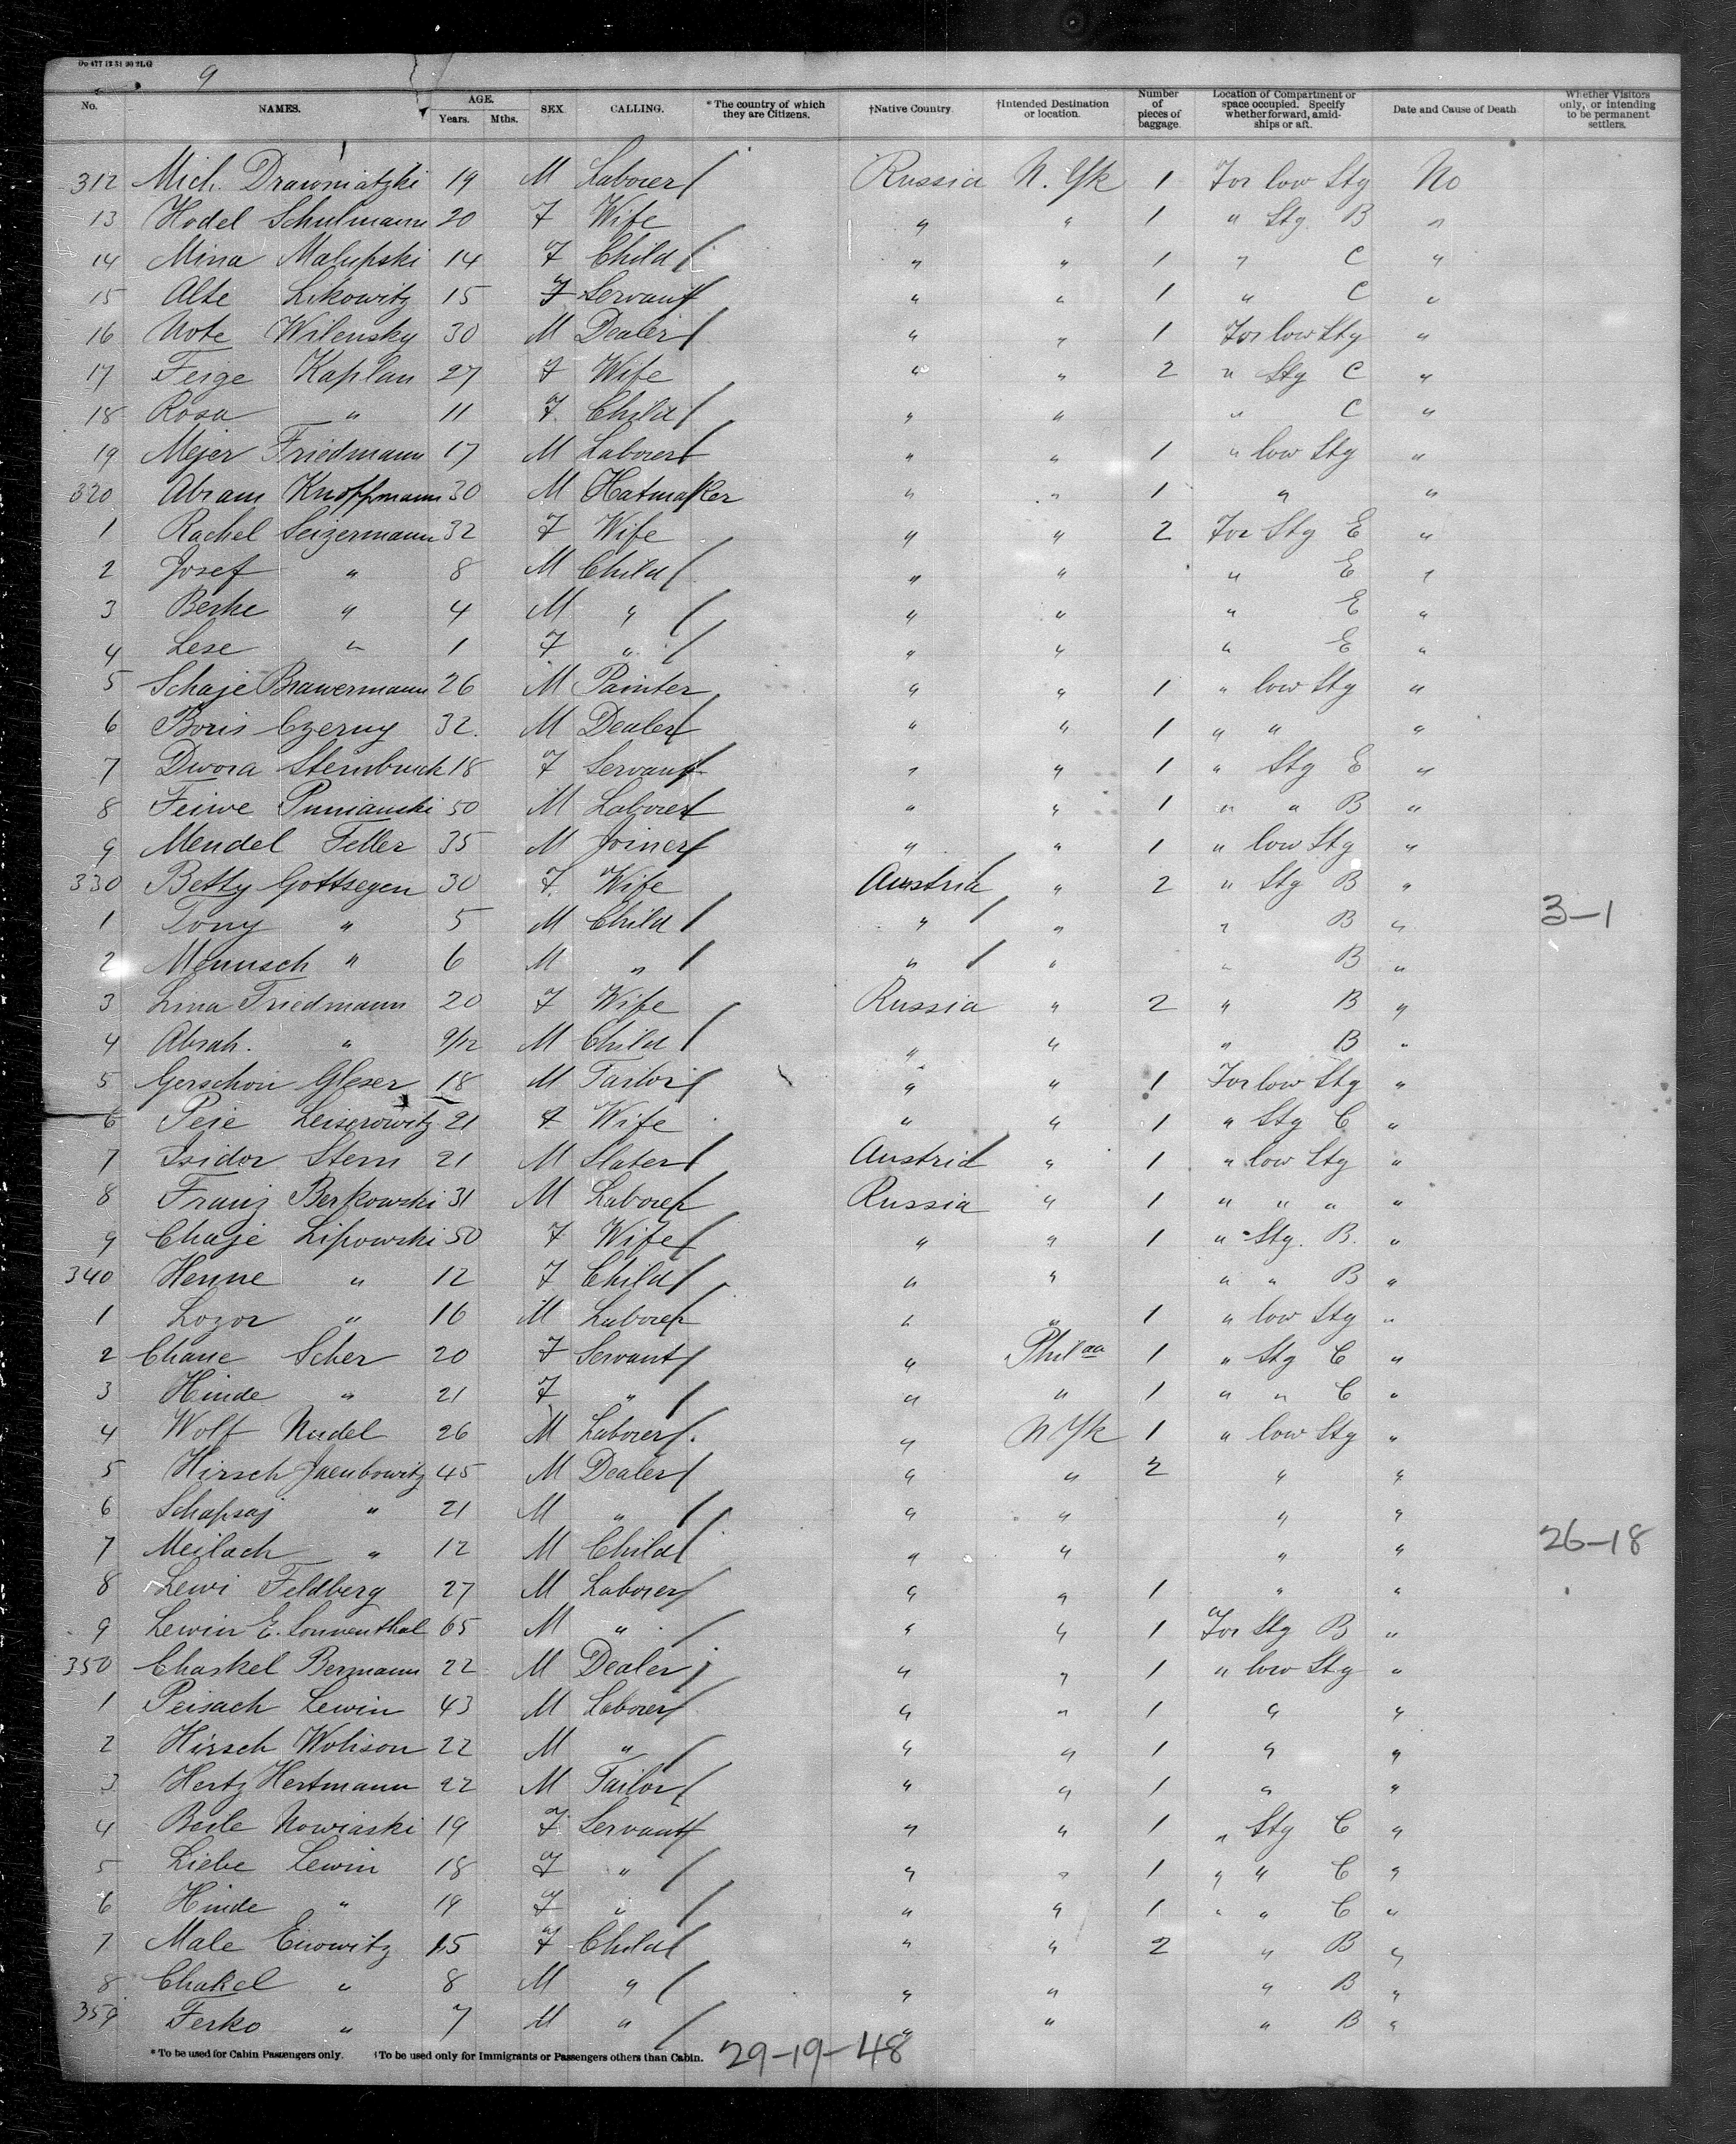 Do 477 12 51 90 2LG
9
No. NAMES. AGE. Years. Mths. SEX. CALLING. * The country of which they are Citizens. †Native Country. †Intended Destination or location. Number of pieces of baggage. Location of Compartment or space occupied. Specify whether forward, amidships or aft. Date and Cause of Death. Whether Visitors only, or intending to be permanent settlers.
312 Mich. Drawniatzki 19 M Laborer Russia N. Yk 1 For low Stg No
13 Hodel Schulmann 20 F Wife " " 1 " Stg. B "
14 Mina Malupski 14 F Child " " 1 " C "
15 Alte Likowitz 15 F Servant " " 1 " C "
16 Note Wilensky 30 M Dealer " " 1 For low Stg "
17 Feige Kaplan 27 F Wife " " 2 " Stg C "
18 Rosa " 11 F. Child " " " C "
19 Mejer Friedmann 17 M Laborer " " 1 " low Stg "
320 Abram Knoffmann 30 M Hatmaker " " 1 " "
1 Rachel Seizermann 32 F Wife " " 2 For Stg E "
2 Josef " 8 M Child " " " E "
3 Berke " 4 M " " " " E "
4 Lese " 1 F " " " " E "
5 Schaje Brawermann 26 M Painter " " 1 " low Stg "
6 Boris Czerny 32. M Dealer " " 1 " " "
7 Dwora Sternbuch 18 F Servant " " 1 " Stg E "
8 Feiwe Punianski 50 M Laborer " " 1 " " B "
9 Mendel Feller 35 M Joiner " " 1 " low Stg "
330 Betty Gottsegen 30 F. Wife Austria " 2 " Stg B "
1 Tony " 5 M Child " " " B " 3-1
2 Menusch " 6 M " " " " B "
3 Lina Friedmann 20 F Wife Russia " 2 " B "
4 Abrah. " 9/12 M Child " " " B "
5 Gerschon Gleser 18 M Tailor " " 1 For low Stg "
6 Peie Leiserowitz 21 F Wife " " 1 " Stg C "
7 Isidor Stern 21 M Slater Austria " 1 " low Stg "
8 Franz Berkowski 31 M Laborer Russia " 1 " " " "
9 Chaje Lipowski 50 F Wife " " 1 " Stg. B. "
340 Henne " 12 F Child " " " " B "
1 Lozor " 16 M Laborer " " 1 " low Stg "
2 Chane Scher 20 F Servant " Philaa 1 " Stg C "
3 Hinde " 21 F " " " 1 " " C "
4 Wolf Nudel 26 M Laborer " N Yk 1 " low Stg "
5 Hirsch Jacubowitz 45 M Dealer " " 2 " "
6 Schapsaj " 21 M " " " " "
7 Meilach " 12 M Child " " " " 26-18
8 Lewi Feldberg 27 M Laborer " " 1 " "
9 Lewin E. Lonnenthal 65 M " " " 1 For Stg B "
350 Chaskel Bermann 22 M Dealer " " 1 " low Stg "
1 Peisach Lewin 43 M Laborer " " 1 " "
2 Hirsch Wolison 22 M " " " 1 " "
3 Hertz Hertmann 22 M Tailor " " 1 " "
4 Beile Nowiaski 19 F Servant " " 1 " Stg C "
5 Liebe Lewin 18 F " " " 1 " " C "
6 Hinde " 19 F " " " 1 " " C "
7 Male Enowitz 15 F Child " " 2 " B "
8 Chakel " 8 M " " " " B "
359 Ferko " 7 M " " " " B "
* To be used for Cabin Passengers only. †To be used only for Immigrants or Passengers others than Cabin. 29-19-48